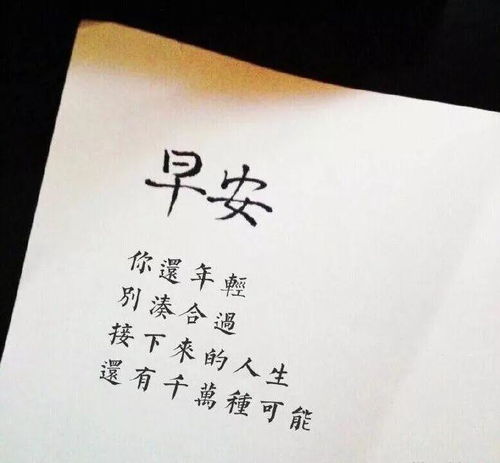 早安
你還年輕
別湊合過
接下來的人生
還有千萬種可能